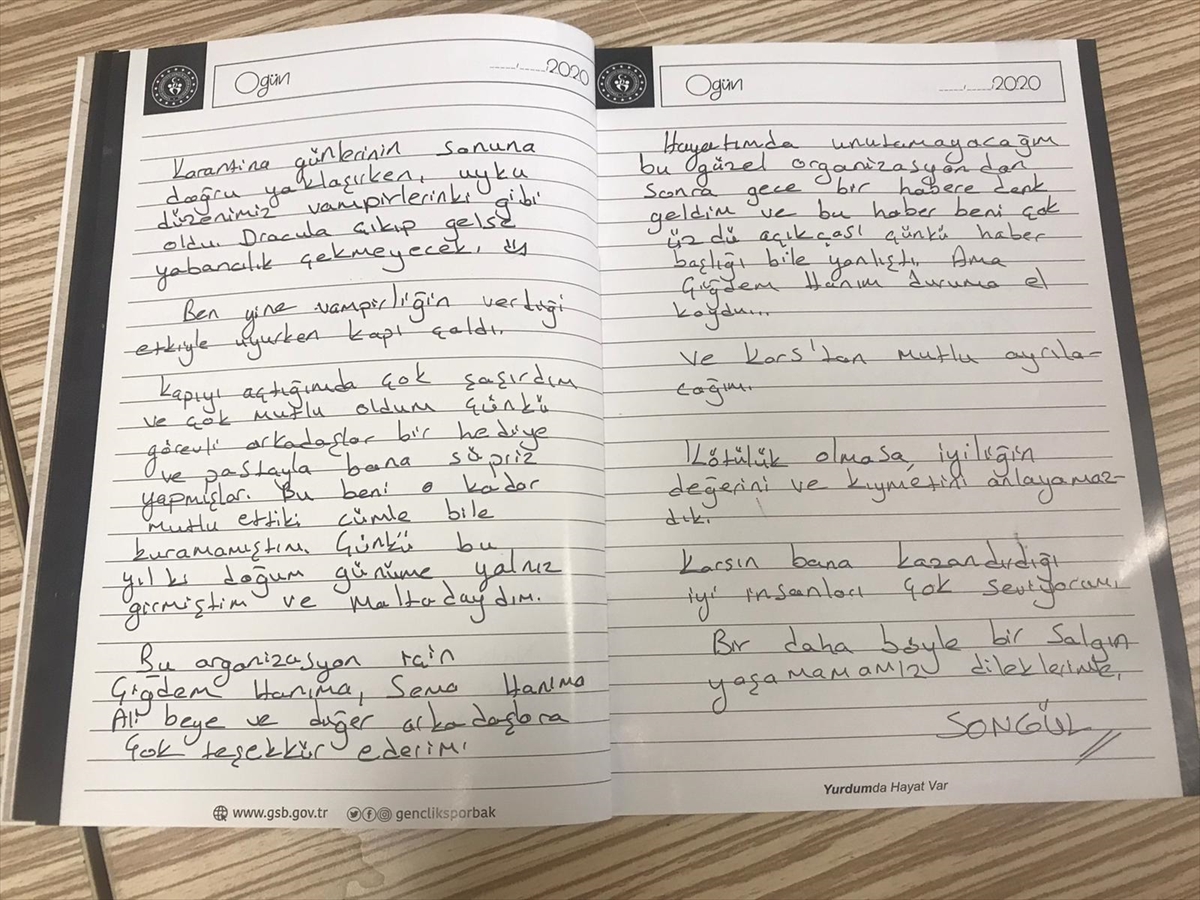 Ogün
....../....../2020
Karantina günlerinin sonuna
doğru yaklaşırken, uyku
düzenimiz vampirlerinki gibi
oldu. Dracula çıkıp gelse
yabancılık çekmeyecek.
Ben yine vampirliğin verdiği
etkiyle uyurken kapı çaldı.
Kapıyı açtığımda çok şaşırdım
ve çok mutlu oldum çünkü
görevli arkadaşlar bir hediye
ve pastayla bana süpriz
yapmışlar. Bu beni o kadar
mutlu ettiki cümle bile
kuramamıştım. Çünkü bu
yılki doğum günüme yalnız
girmiştim ve Maltadaydım.
Bu organizasyon için
Çiğdem Hanıma, Sema Hanıma
Ali beye ve diğer arkadaşlara
Çok teşekkür ederim.
www.gsb.gov.tr
genclikSporbak
Ogün
....../....../2020
Hayatımda unutamayacağım
bu güzel organizasyondan
sonra gece bir habere denk
geldim ve bu haber beni çok
üzdü açıkçası çünkü haber
başlığı bile yanlıştı. Ama
Çiğdem Hanım duruma el
koydu...
ve Kars'tan mutlu ayrıla-
cağım.
Kötülük olmasa iyiliğin
değerini ve kıymetini anlayamaz-
dık.
Karsın bana kazandırdığı
iyi insanları çok seviyorum.
Bir daha böyle bir Salgın
yaşamamamız dileklerimle,
SONGÜL
Yurdumda Hayat Var